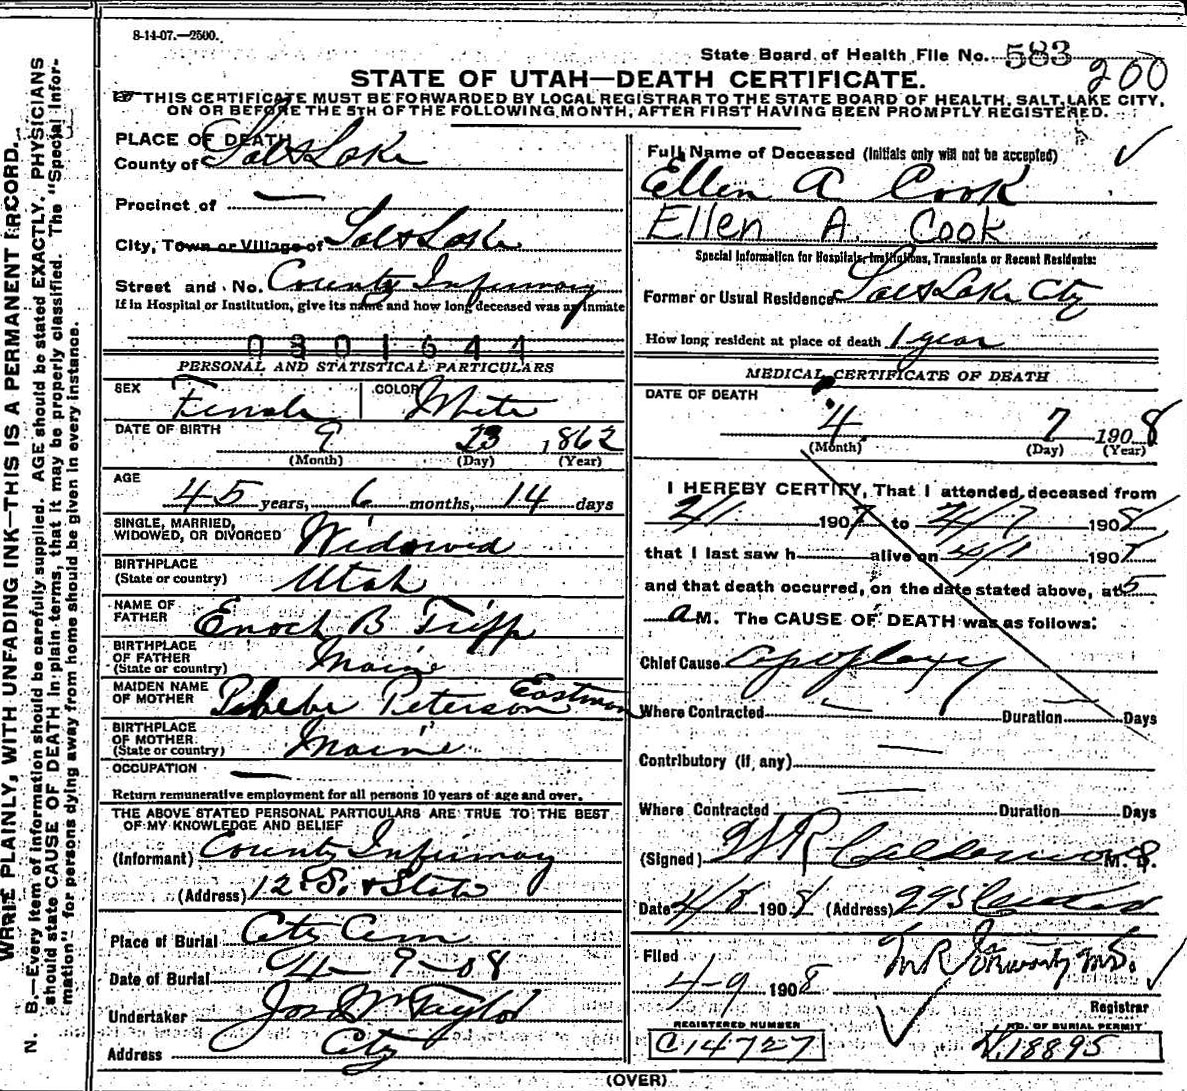 8-14-07.—2500.
State Board of Health File No. 583
200
STATE OF UTAH—DEATH CERTIFICATE.
THIS CERTIFICATE MUST BE FORWARDED BY LOCAL REGISTRAR TO THE STATE BOARD OF HEALTH, SALT LAKE CITY,
ON OR BEFORE THE 5TH OF THE FOLLOWING MONTH, AFTER FIRST HAVING BEEN PROMPTLY REGISTERED.
WRITE PLAINLY, WITH UNFADING INK—THIS IS A PERMANENT RECORD.
N. B.—Every item of information should be carefully supplied. AGE should be stated EXACTLY. PHYSICIANS
should state CAUSE OF DEATH in plain terms, that it may be properly classified. The "Special Infor-
mation" for persons dying away from home should be given in every instance.
PLACE OF DEATH
County of Salt Lake
Precinct of —
City, Town or Village of Salt Lake
Street and No. County Infirmary
If in Hospital or Institution, give its name and how long deceased was an inmate
0301644
PERSONAL AND STATISTICAL PARTICULARS
SEX Female COLOR White
DATE OF BIRTH 9 23 , 1862
(Month) (Day) (Year)
AGE 45 years, 6 months, 14 days
SINGLE, MARRIED,
WIDOWED, OR DIVORCED Widowed
BIRTHPLACE
(State or country) Utah
NAME OF
FATHER Enoch B Tripp
BIRTHPLACE
OF FATHER
(State or country) Maine
MAIDEN NAME
OF MOTHER Phebe Peterson Eastman
BIRTHPLACE
OF MOTHER
(State or country) Maine
OCCUPATION —
Return remunerative employment for all persons 10 years of age and over.
THE ABOVE STATED PERSONAL PARTICULARS ARE TRUE TO THE BEST
OF MY KNOWLEDGE AND BELIEF
(Informant) County Infirmary
(Address) 12 S. & State
Place of Burial City Cem
Date of Burial 4-9-08
Undertaker Jos Wm Taylor
Address City
Full Name of Deceased (Initials only will not be accepted)
Ellen A Cook
Ellen A. Cook
Special Information for Hospitals, Institutions, Transients or Recent Residents:
Former or Usual Residence Salt Lake City
How long resident at place of death 1 year
MEDICAL CERTIFICATE OF DEATH
DATE OF DEATH
4 7 1908
(Month) (Day) (Year)
I HEREBY CERTIFY, That I attended deceased from
1907 to 4/7 1908
that I last saw h alive on 190
and that death occurred, on the date stated above, at 5
a M. The CAUSE OF DEATH was as follows:
Chief Cause Apoplexy
Where Contracted — Duration Days
Contributory (if any) —
Where Contracted — Duration Days
(Signed) W R Calderwood M. D.
Date 4/8 1908 (Address)
Filed
4-9 1908
Registrar
REGISTERED NUMBER
C14727
NO. OF BURIAL PERMIT
18895
(OVER)